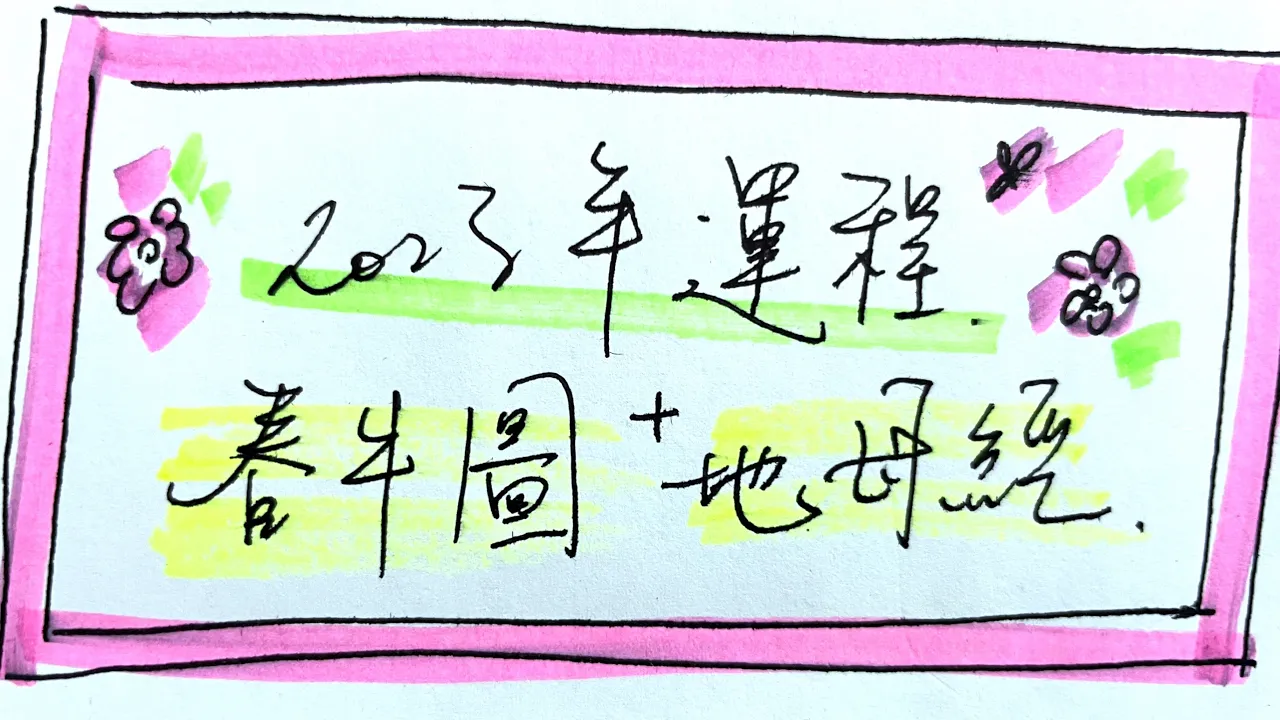 2023年運程.
春牛圖+地母經.